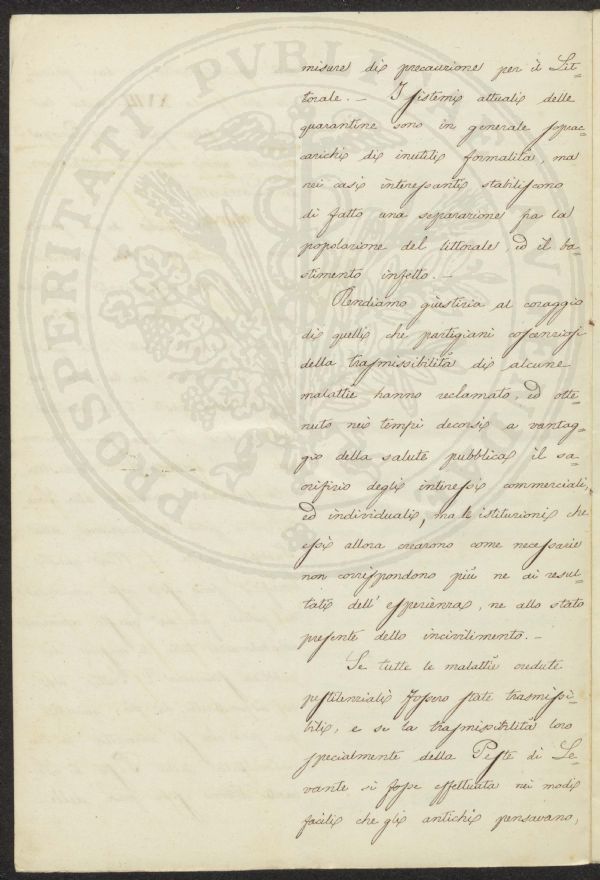 misure di precauzione per il Lit-
torale. - I sistemi attuali delle
quarantine sono in generale soprac-
carichi di inutili formalità, ma
nei casi interessanti stabiliscono
di fatto una separazione fra la
popolazione del littorale, ed il ba-
stimento infetto. -
Rendiamo giustizia al coraggio
di quelli che partigiani coscenziosi
della trasmissibilità di alcune
malattie hanno reclamato, ed otte-
nuto nei tempi decorsi a vantag-
gio della salute pubblica il sa-
crifizio degli interessi commerciali,
ed individuali, ma le istituzioni che
essi allora crearono come necessarie
non corrispondono più ne ai resul-
tati dell' esperienza, ne allo stato
presente dello incivilimento. -
Se tutte le malattie credute
pestilenziali fossero state trasmissi-
bili, e se la trasmissibilità loro
specialmente della Peste di Le-
vante si fosse effettuata nei modi
facili che gli antichi pensavano,
PROSPERITATI PVBLICAE